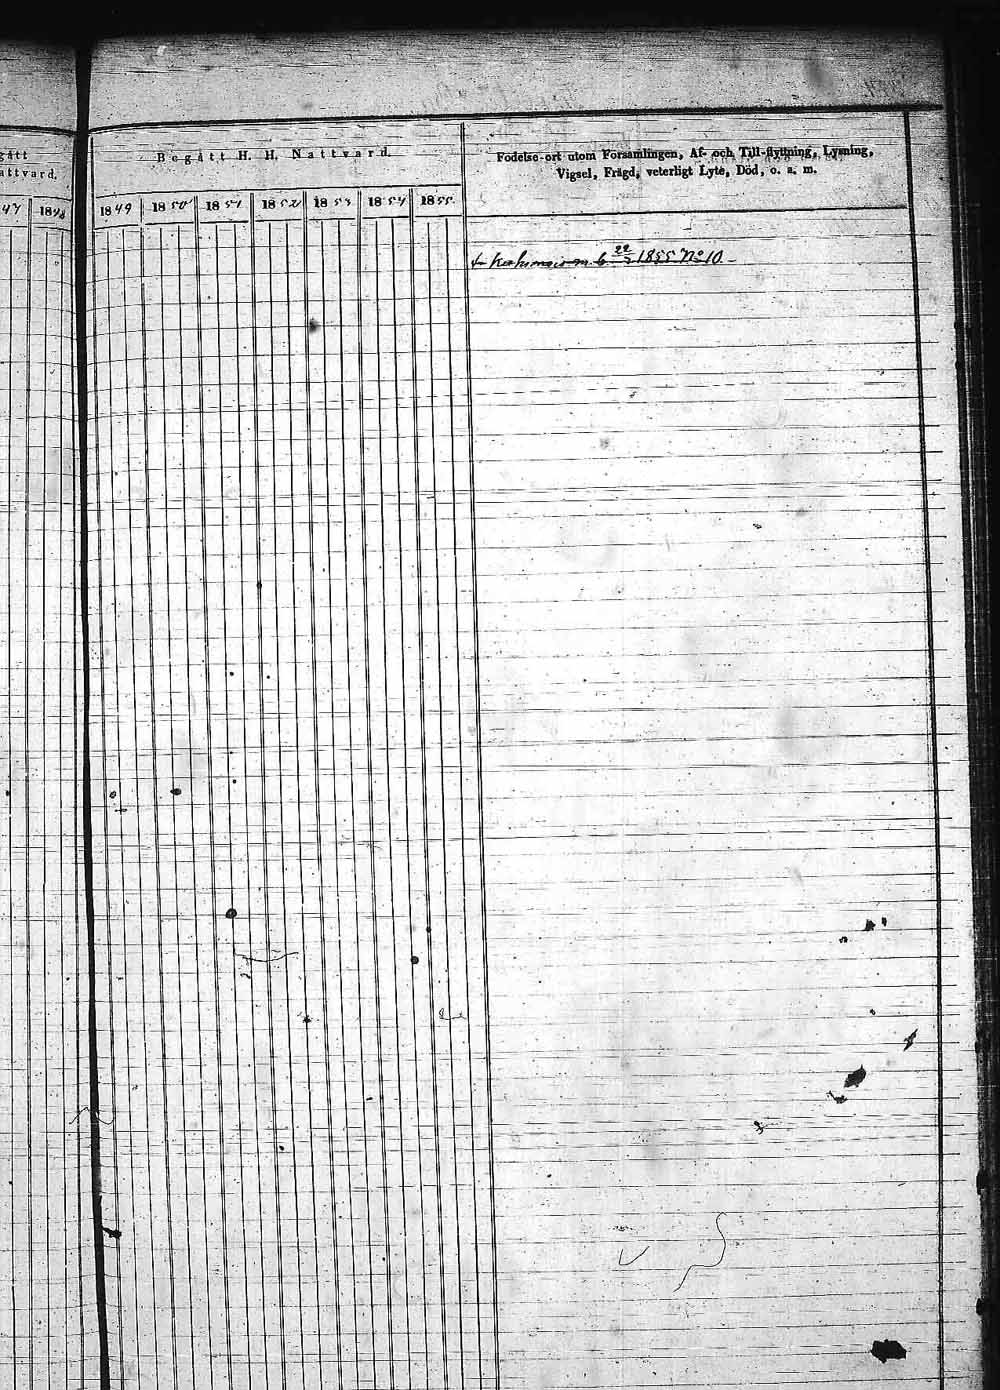 gått
attvard.
47 1848
Begått H. H. Nattvard.
1849 1850 1851 1852 1853 1854 1855
Födelse-ort utom Församlingen, Af- och Till-flyttning, Lysning,
Vigsel, Frägd, veterligt Lyte, Död, o. s. m.
22 1855 No 10.